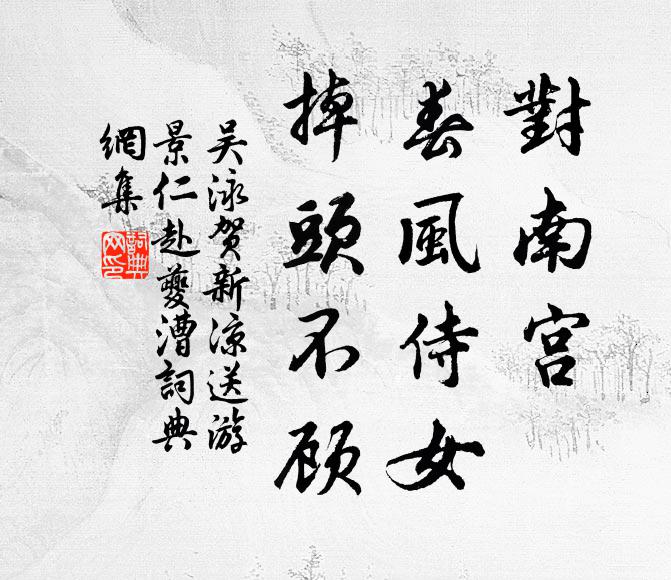 對南宮
春風侍女
掉頭不顧
吴泳贺新凉送游
景仁赴夔漕詞典
網集
詞典
网印